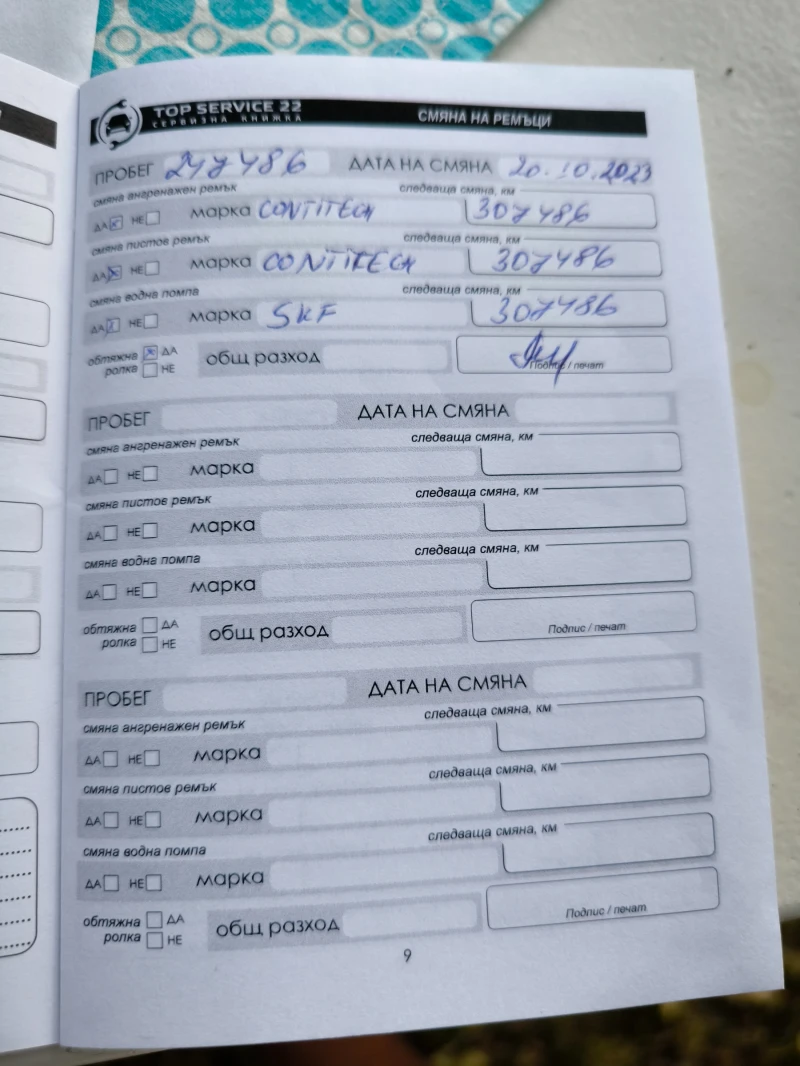 TOP SERVICE 22
СЕРВИЗНА КНИЖКА
СМЯНА НА РЕМЪЦИ
ПРОБЕГ 247486 ДАТА НА СМЯНА 20.10.2023
смяна ангренажен ремък следваща смяна, км
ДА НЕ марка CONTITECH 307486
смяна пистов ремък следваща смяна, км
ДА НЕ марка CONTITECH 307486
смяна водна помпа следваща смяна, км
ДА НЕ марка SKF 307486
обтяжна ДА
ролка НЕ общ разход Подпис / печат
ПРОБЕГ ДАТА НА СМЯНА
смяна ангренажен ремък следваща смяна, км
ДА НЕ марка
смяна пистов ремък следваща смяна, км
ДА НЕ марка
смяна водна помпа следваща смяна, км
ДА НЕ марка
обтяжна ДА
ролка НЕ общ разход Подпис / печат
ПРОБЕГ ДАТА НА СМЯНА
смяна ангренажен ремък следваща смяна, км
ДА НЕ марка
смяна пистов ремък следваща смяна, км
ДА НЕ марка
смяна водна помпа следваща смяна, км
ДА НЕ марка
обтяжна ДА
ролка НЕ общ разход Подпис / печат
9